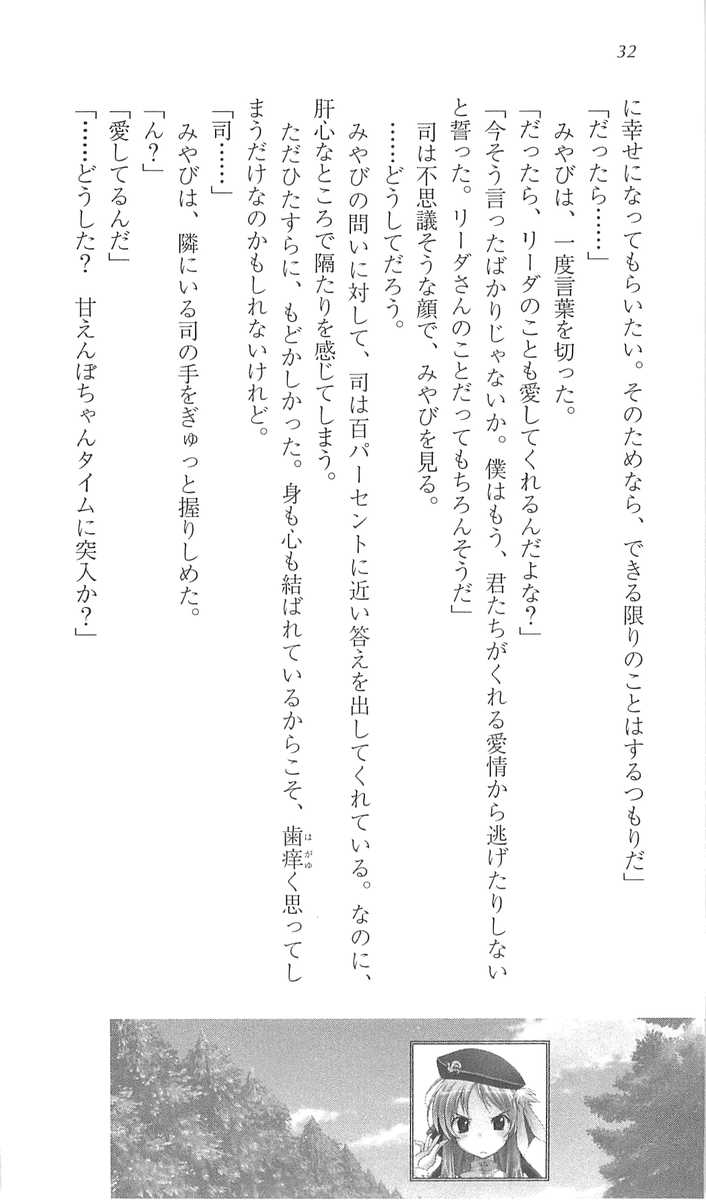 32
に幸せになってもらいたい。そのためなら、できる限りのことはするつもりだ」
「だったら……」
みやびは、一度言葉を切った。
「だったら、リーダのことも愛してくれるんだよな？」
「今そう言ったばかりじゃないか。僕はもう、君たちがくれる愛情から逃げたりしない
と誓った。リーダさんのことだってもちろんそうだ」
司は不思議そうな顔で、みやびを見る。
……どうしてだろう。
みやびの問いに対して、司は百パーセントに近い答えを出してくれている。なのに、
肝心なところで隔たりを感じてしまう。
ただひたすらに、もどかしかった。身も心も結ばれているからこそ、歯痒く思ってし
まうだけなのかもしれないけれど。
「司……」
みやびは、隣にいる司の手をぎゅっと握りしめた。
「ん？」
「愛してるんだ」
「……どうした？　甘えんぼちゃんタイムに突入か？」